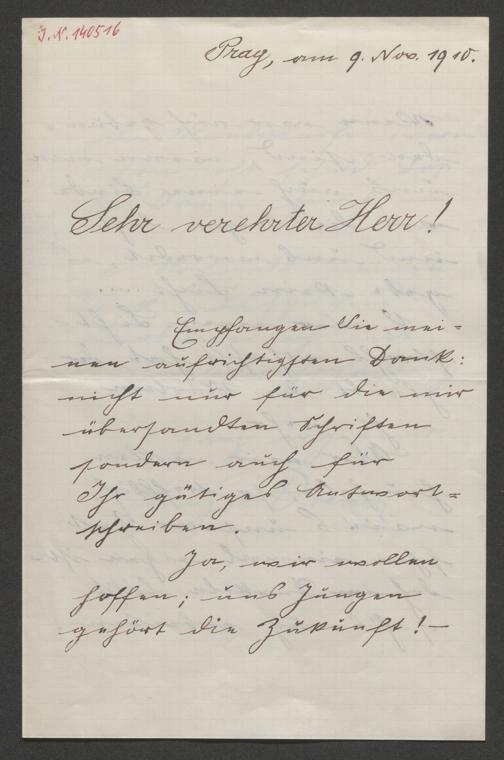 J.N. 140516
Prag, am 9. Nov. 1910.
Sehr verehrter Herr!
Empfangen Sie mei=
nen aufrichtigsten Dank:
nicht nur für die mir
übersandten Schriften
sondern auch für
Ihr gütiges Antwort=
schreiben.
Ja, wir wollen
hoffen; uns Jungen
gehört die Zukunft! –